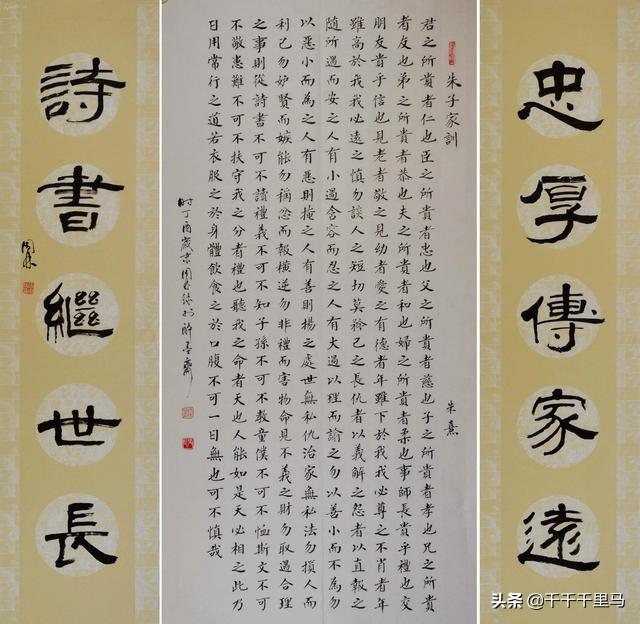 忠厚傳家遠
朱子家訓 朱熹
君之所貴者仁也臣之所貴者忠也父之所貴者慈也子之所貴者孝也兄之所貴
者友也弟之所貴者恭也夫之所貴者和也婦之所貴者柔也事師長貴乎禮也交
朋友貴乎信也見老者敬之見幼者愛之有德者年雖下於我我必尊之不肖者年
雖高於我我必遠之慎勿談人之短切莫矜己之長仇者以義解之怨者以直報之
隨所遇而安之人有小過含容而忍之人有大過以理而諭之勿以善小而不為勿
以惡小而為之人有惡則掩之人有善則揚之處世無私仇治家無私法勿損人而
利己勿妒賢而嫉能勿稱忿而報橫逆勿非禮而害物命見不義之財勿取遇合理
之事則從詩書不可不讀禮義不可不知子孫不可不教童僕不可不恤斯文不可
不敬患難不可不扶守我之分者禮也聽我之命者天也人能如是天必相之此乃
日用常行之道若衣服之於身體飲食之於口腹不可一日無也可不慎哉
時丁酉歲
詩書繼世長
头条 @千千千里马